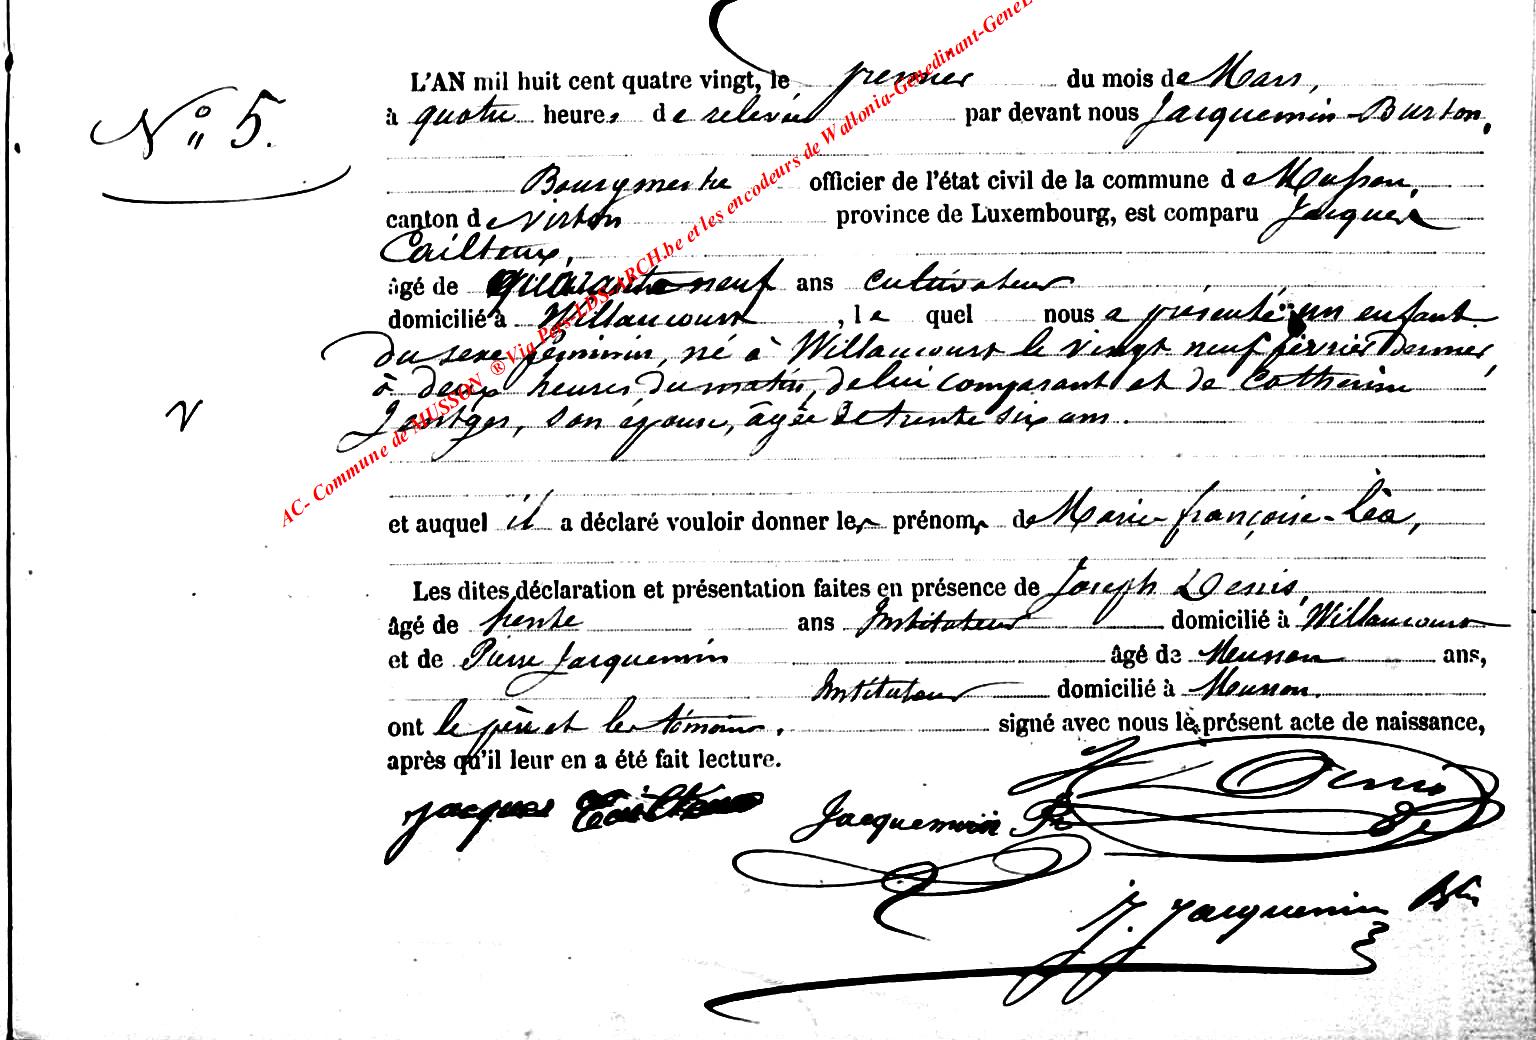 L'AN mil huit cent quatre vingt, le premier du mois de Mars,
N° 5.
à quatre heures de relevée par devant nous Jacquemin-Burton,
Bourgmestre officier de l'état civil de la commune de Musson,
canton de Virton province de Luxembourg, est comparu Jacques
Cailteux,
âgé de quarante neuf ans cultivateur
domicilié à Willancourt, le quel nous a présenté un enfant
du sexe féminin, né à Willancourt le vingt neuf février dernier
à deux heures du matin, de lui comparant et de Catherine
Jentges, son épouse, âgée de trente six ans.
V
et auquel il a déclaré vouloir donner les prénoms de Marie-françoise-Léa,
Les dites déclaration et présentation faites en présence de Joseph Denis,
âgé de trente ans Instituteur domicilié à Willancourt
et de Pierre Jacquemin âgé de Musson ans,
Instituteur domicilié à Musson.
ont le père et les témoins. signé avec nous le présent acte de naissance,
après qu'il leur en a été fait lecture.
Jacques Cailteux Jacquemin P. Denis
J. Jacquemin Btn
AC- Commune de MUSSON ® Via Pers-LDS-ARCH.be et les encodeurs de Wallonia-Genedinant-GeneL